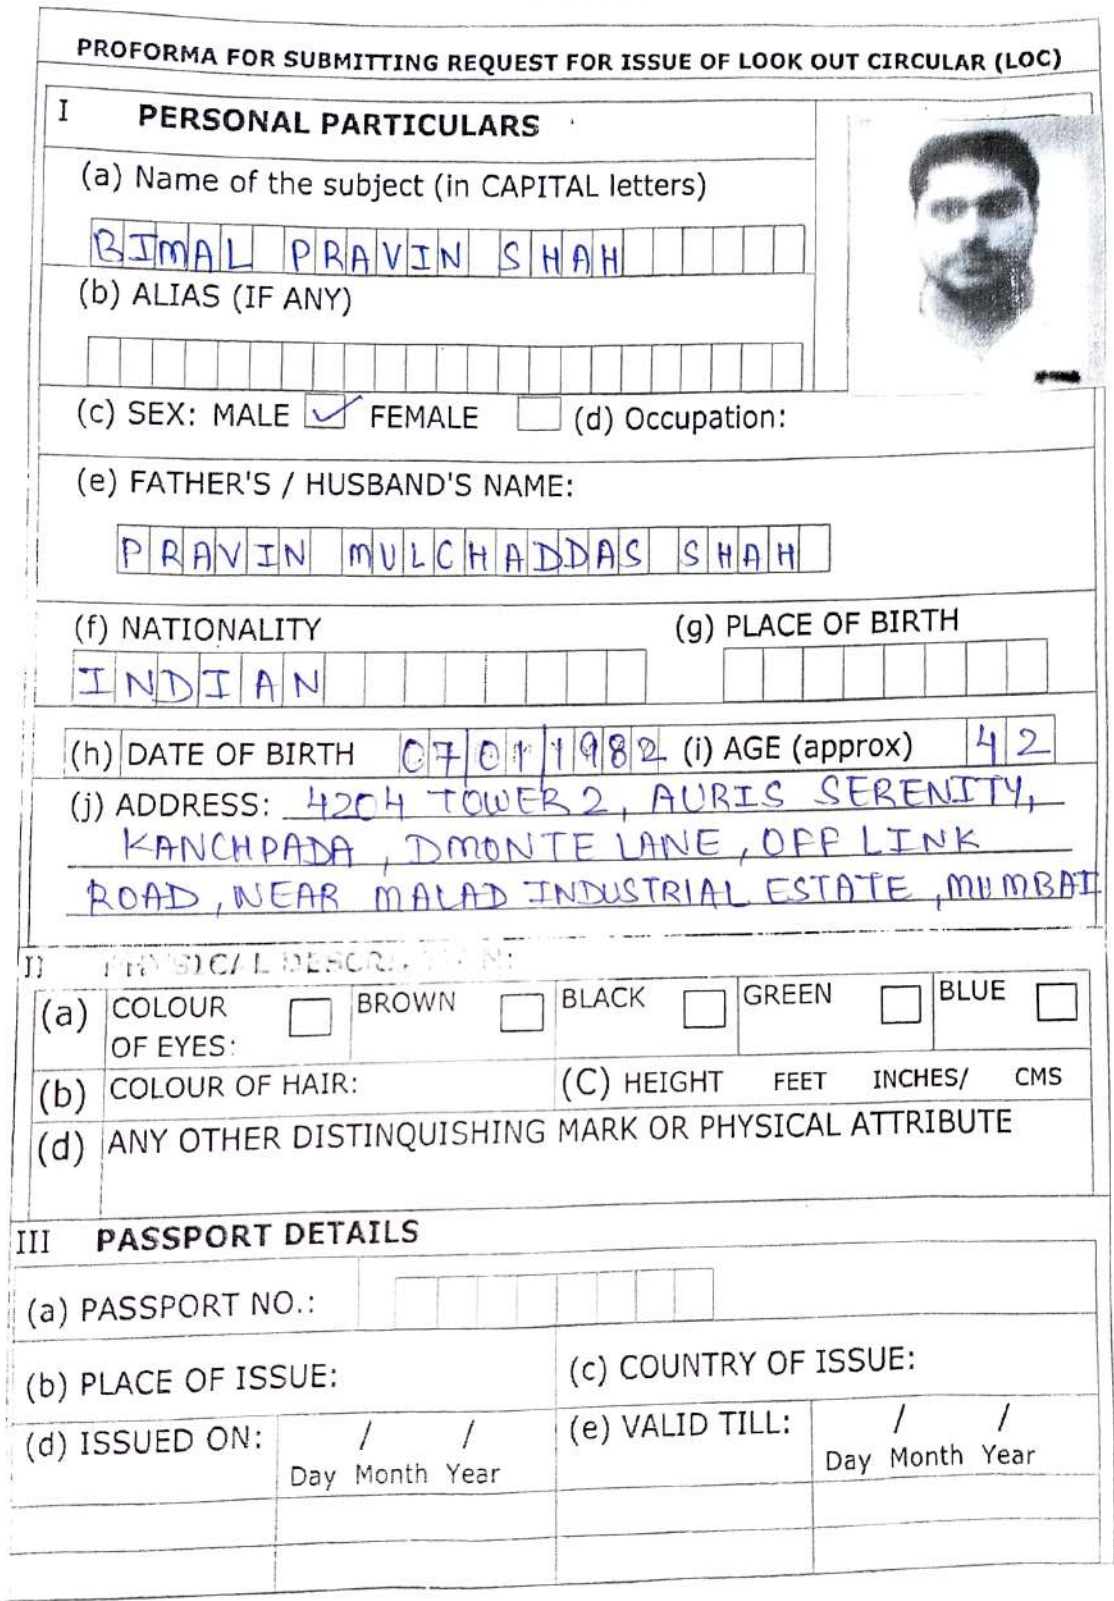 PROFORMA FOR SUBMITTING REQUEST FOR ISSUE OF LOOK OUT CIRCULAR (LOC)
I PERSONAL PARTICULARS
(a) Name of the subject (in CAPITAL letters)
BIMAL PRAVIN SHAH
(b) ALIAS (IF ANY)
(c) SEX: MALE ✓ FEMALE (d) Occupation:
(e) FATHER'S / HUSBAND'S NAME:
PRAVIN MULCHADDAS SHAH
(f) NATIONALITY (g) PLACE OF BIRTH
INDIAN
(h) DATE OF BIRTH 07011982 (i) AGE (approx) 42
(j) ADDRESS: 4204 TOWER 2, AURIS SERENITY,
KANCHPADA, DMONTE LANE, OFF LINK
ROAD, NEAR MALAD INDUSTRIAL ESTATE, MUMBAI
II PHYSICAL DESCRIPTION:
(a) COLOUR BROWN BLACK GREEN BLUE
OF EYES:
(b) COLOUR OF HAIR: (C) HEIGHT FEET INCHES/ CMS
(d) ANY OTHER DISTINQUISHING MARK OR PHYSICAL ATTRIBUTE
III PASSPORT DETAILS
(a) PASSPORT NO.:
(b) PLACE OF ISSUE: (c) COUNTRY OF ISSUE:
(d) ISSUED ON: / / (e) VALID TILL: / /
Day Month Year Day Month Year